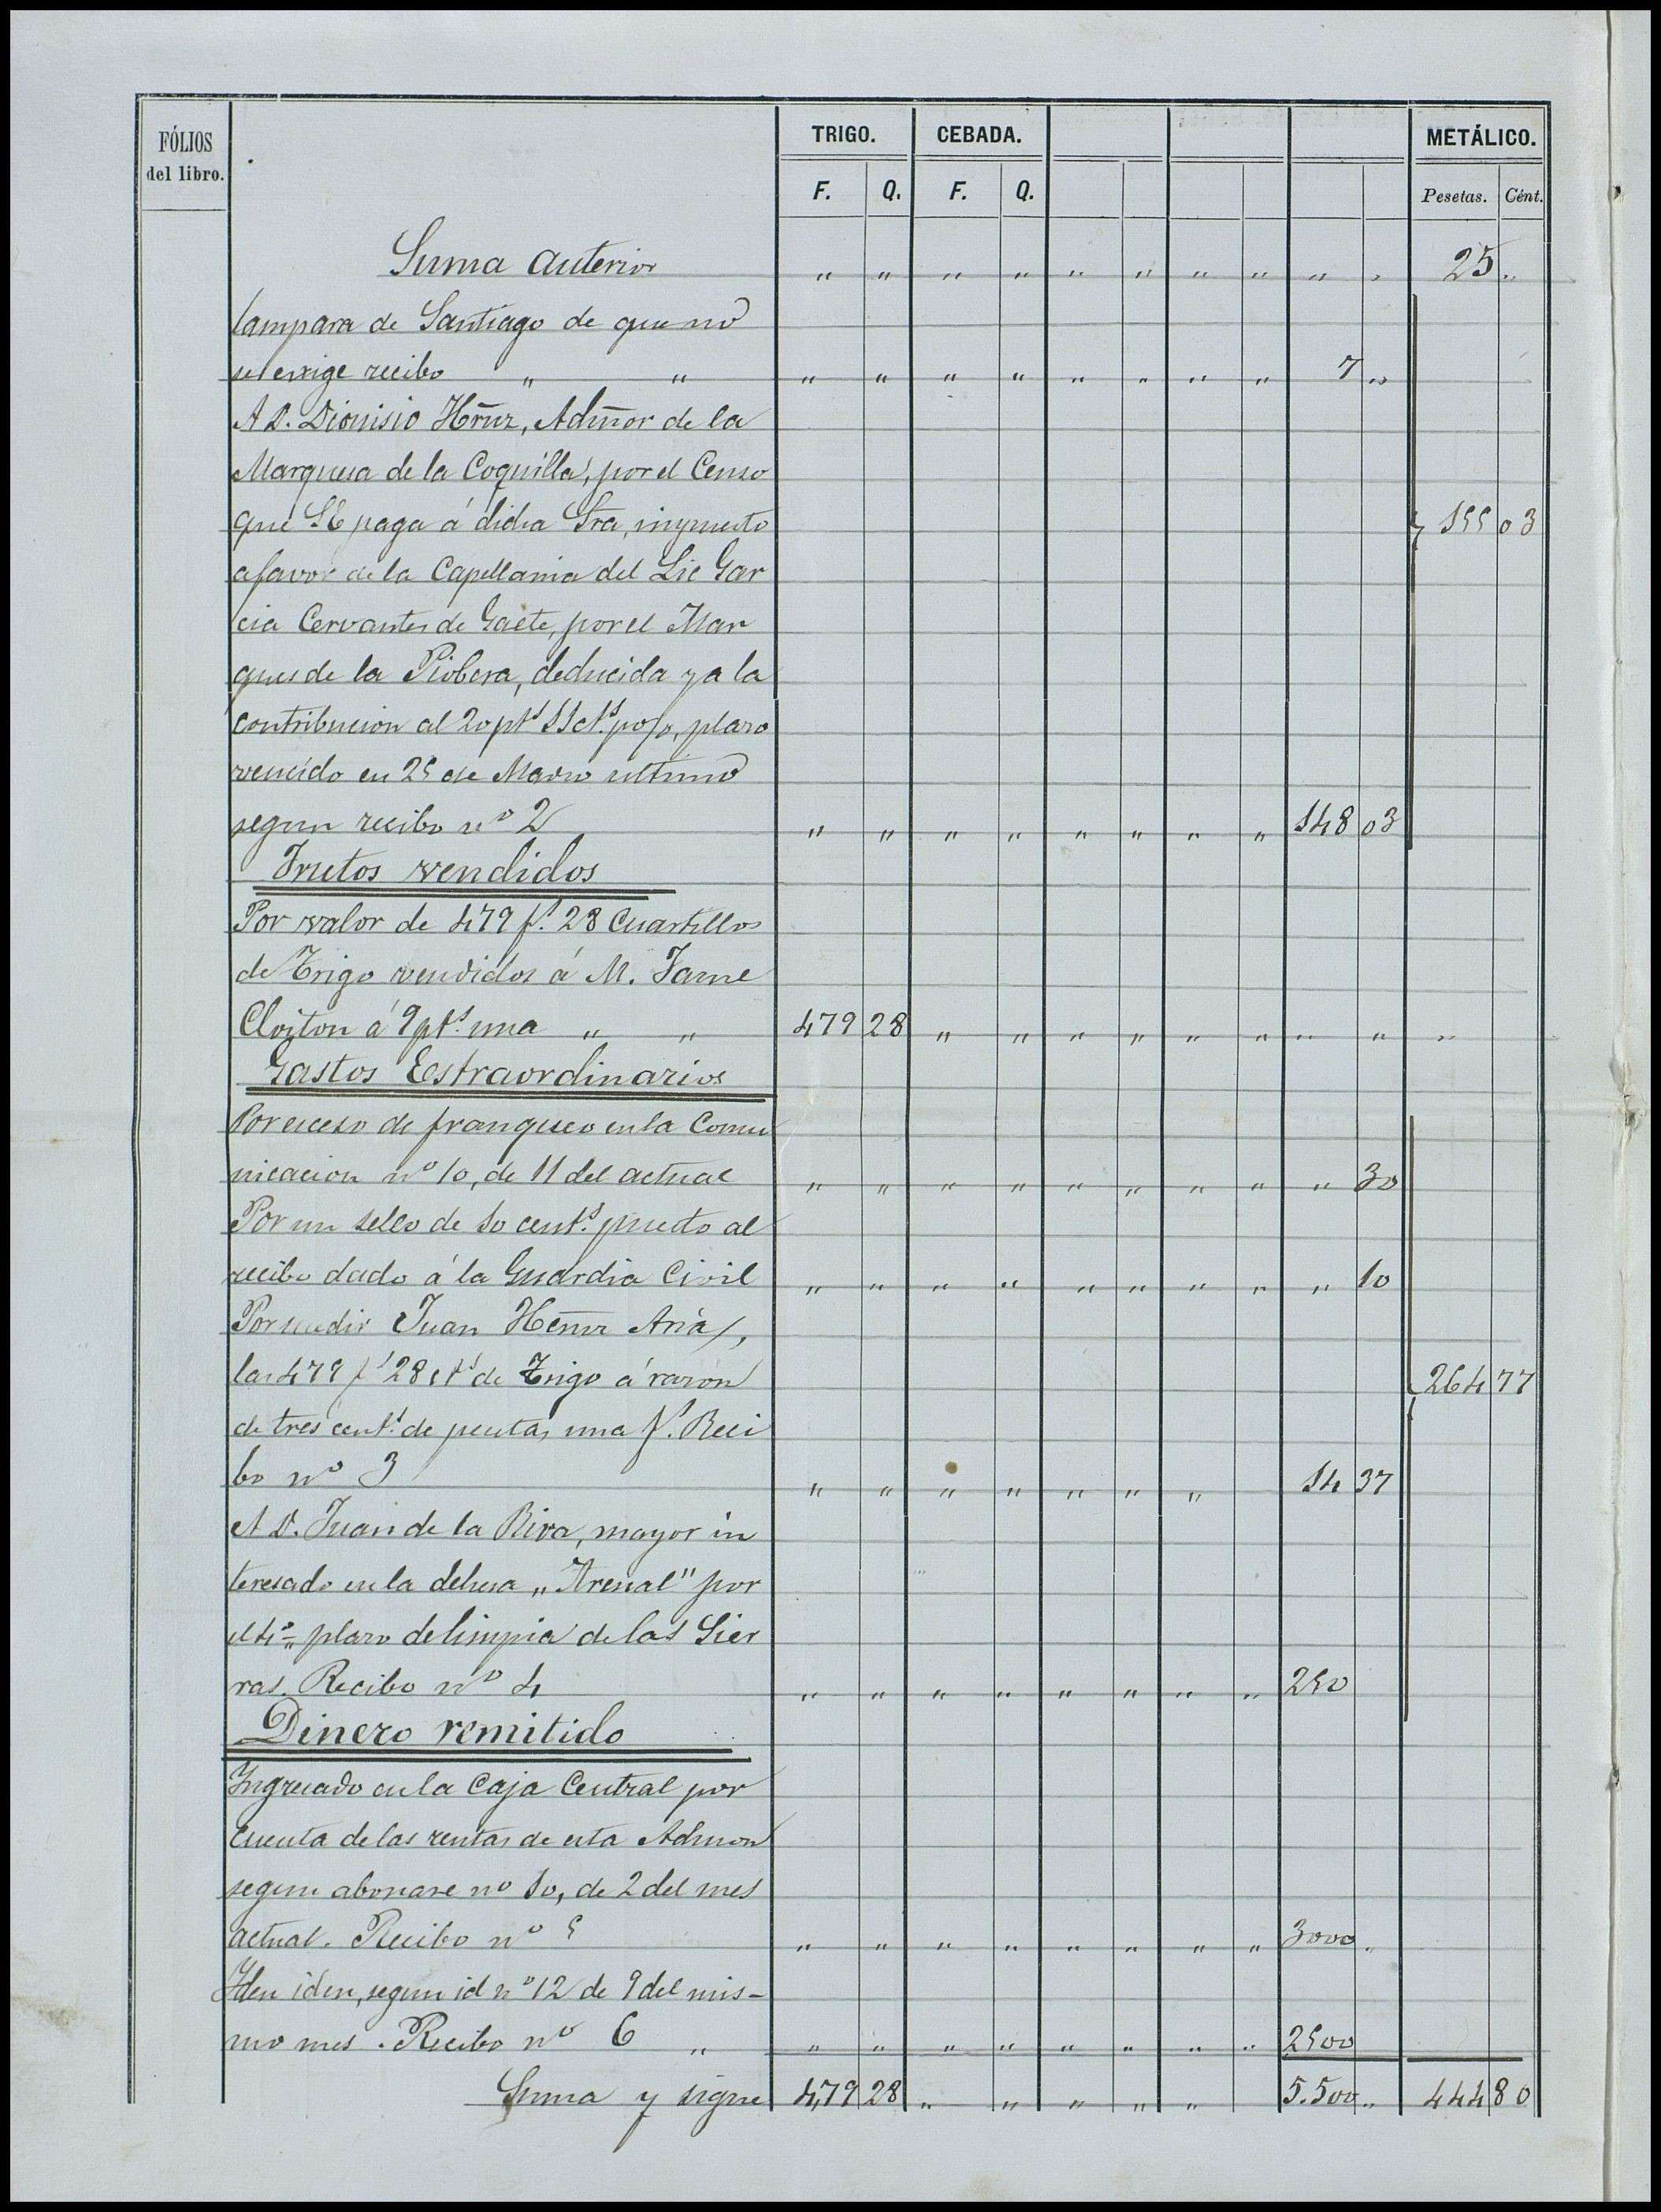 FÓLIOS del libro. TRIGO. CEBADA. METÁLICO.
F. Q. F. Q. Pesetas. Cént.
Suma anterior „ „ „ „ „ „ „ „ „ „ 25 „
lampara de Santiago de que no
se exige recibo „ „ „ „ „ „ „ „ „ „ 7 „
A D. Dionisio Hrñz, Admñor de la
Marquesa de la Coquilla, por el Censo
que SE paga á dicha Sra, impuesto 155 03
a favor de la Capellania del Lic Gar
cia Cervantes de Gaete, por el Mar
ques de la Piobera, deducida ya la
contribucion al 20 pts 11 cts. p%, plazo
vencido en 25 de Marzo ultimo
segun recibo nº 2 „ „ „ „ „ „ „ „ 148 03
Frutos vendidos
Por valor de 479 fs. 28 Cuartillos
de Trigo vendidos á M. Jame
Cloiton á 9 pts. una „ „ 479 28 „ „ „ „ „ „ „ „ „
Gastos Estraordinarios
Por exceso de franqueo en la Comu
nicacion nº 10, de 11 del actual „ „ „ „ „ „ „ „ „ 30
Por un sello de 10 cents. puesto al
recibo dado á la Guardia Civil „ „ „ „ „ „ „ „ „ 10
Por medir Juan Hernz Arias,
las 479 fs 28 cts de Trigo á razon 264 77
de tres cents. de peseta, una f. Reci
bo nº 3 „ „ „ „ „ „ „ 14 37
A D. Juan de la Riva, mayor in
teresado en la dehesa „Arenal" por
el 4º plazo de limpia de las Sier
ras. Recibo nº 4 „ „ „ „ „ „ „ „ 250
Dinero remitido
Ingresado en la Caja Central por
cuenta de las rentas de esta Admon
segun abonare nº 10, de 2 del mes
actual. Recibo nº 5 „ „ „ „ „ „ „ „ 3000 „
Iden iden, segun id nº 12 de 9 del mis-
mo mes. Recibo nº 6 „ „ „ „ „ „ „ „ „ 2500
Suma y sigue 479 28 „ „ „ „ „ 5.500 „ 444 80